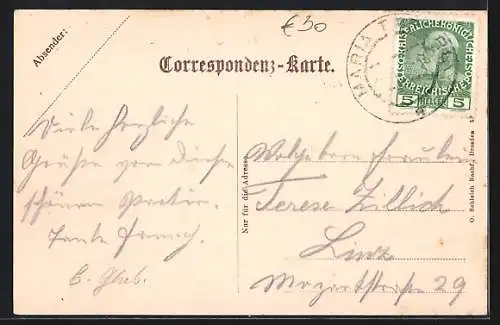 €30
Absender:
Correspondenz-Karte.
MARIA T
KAISERLICHE KÖNIGLICHE
ÖSTERREICHISCHE
5 5
Viele herzliche
Grüße von dieser
schönen
Tante
Nur für die Adresse.
Wohlgeboren Fräulein
Terese Zillich
Linz
Mozartstraße 29
O. Schleich Nachf., Dresden